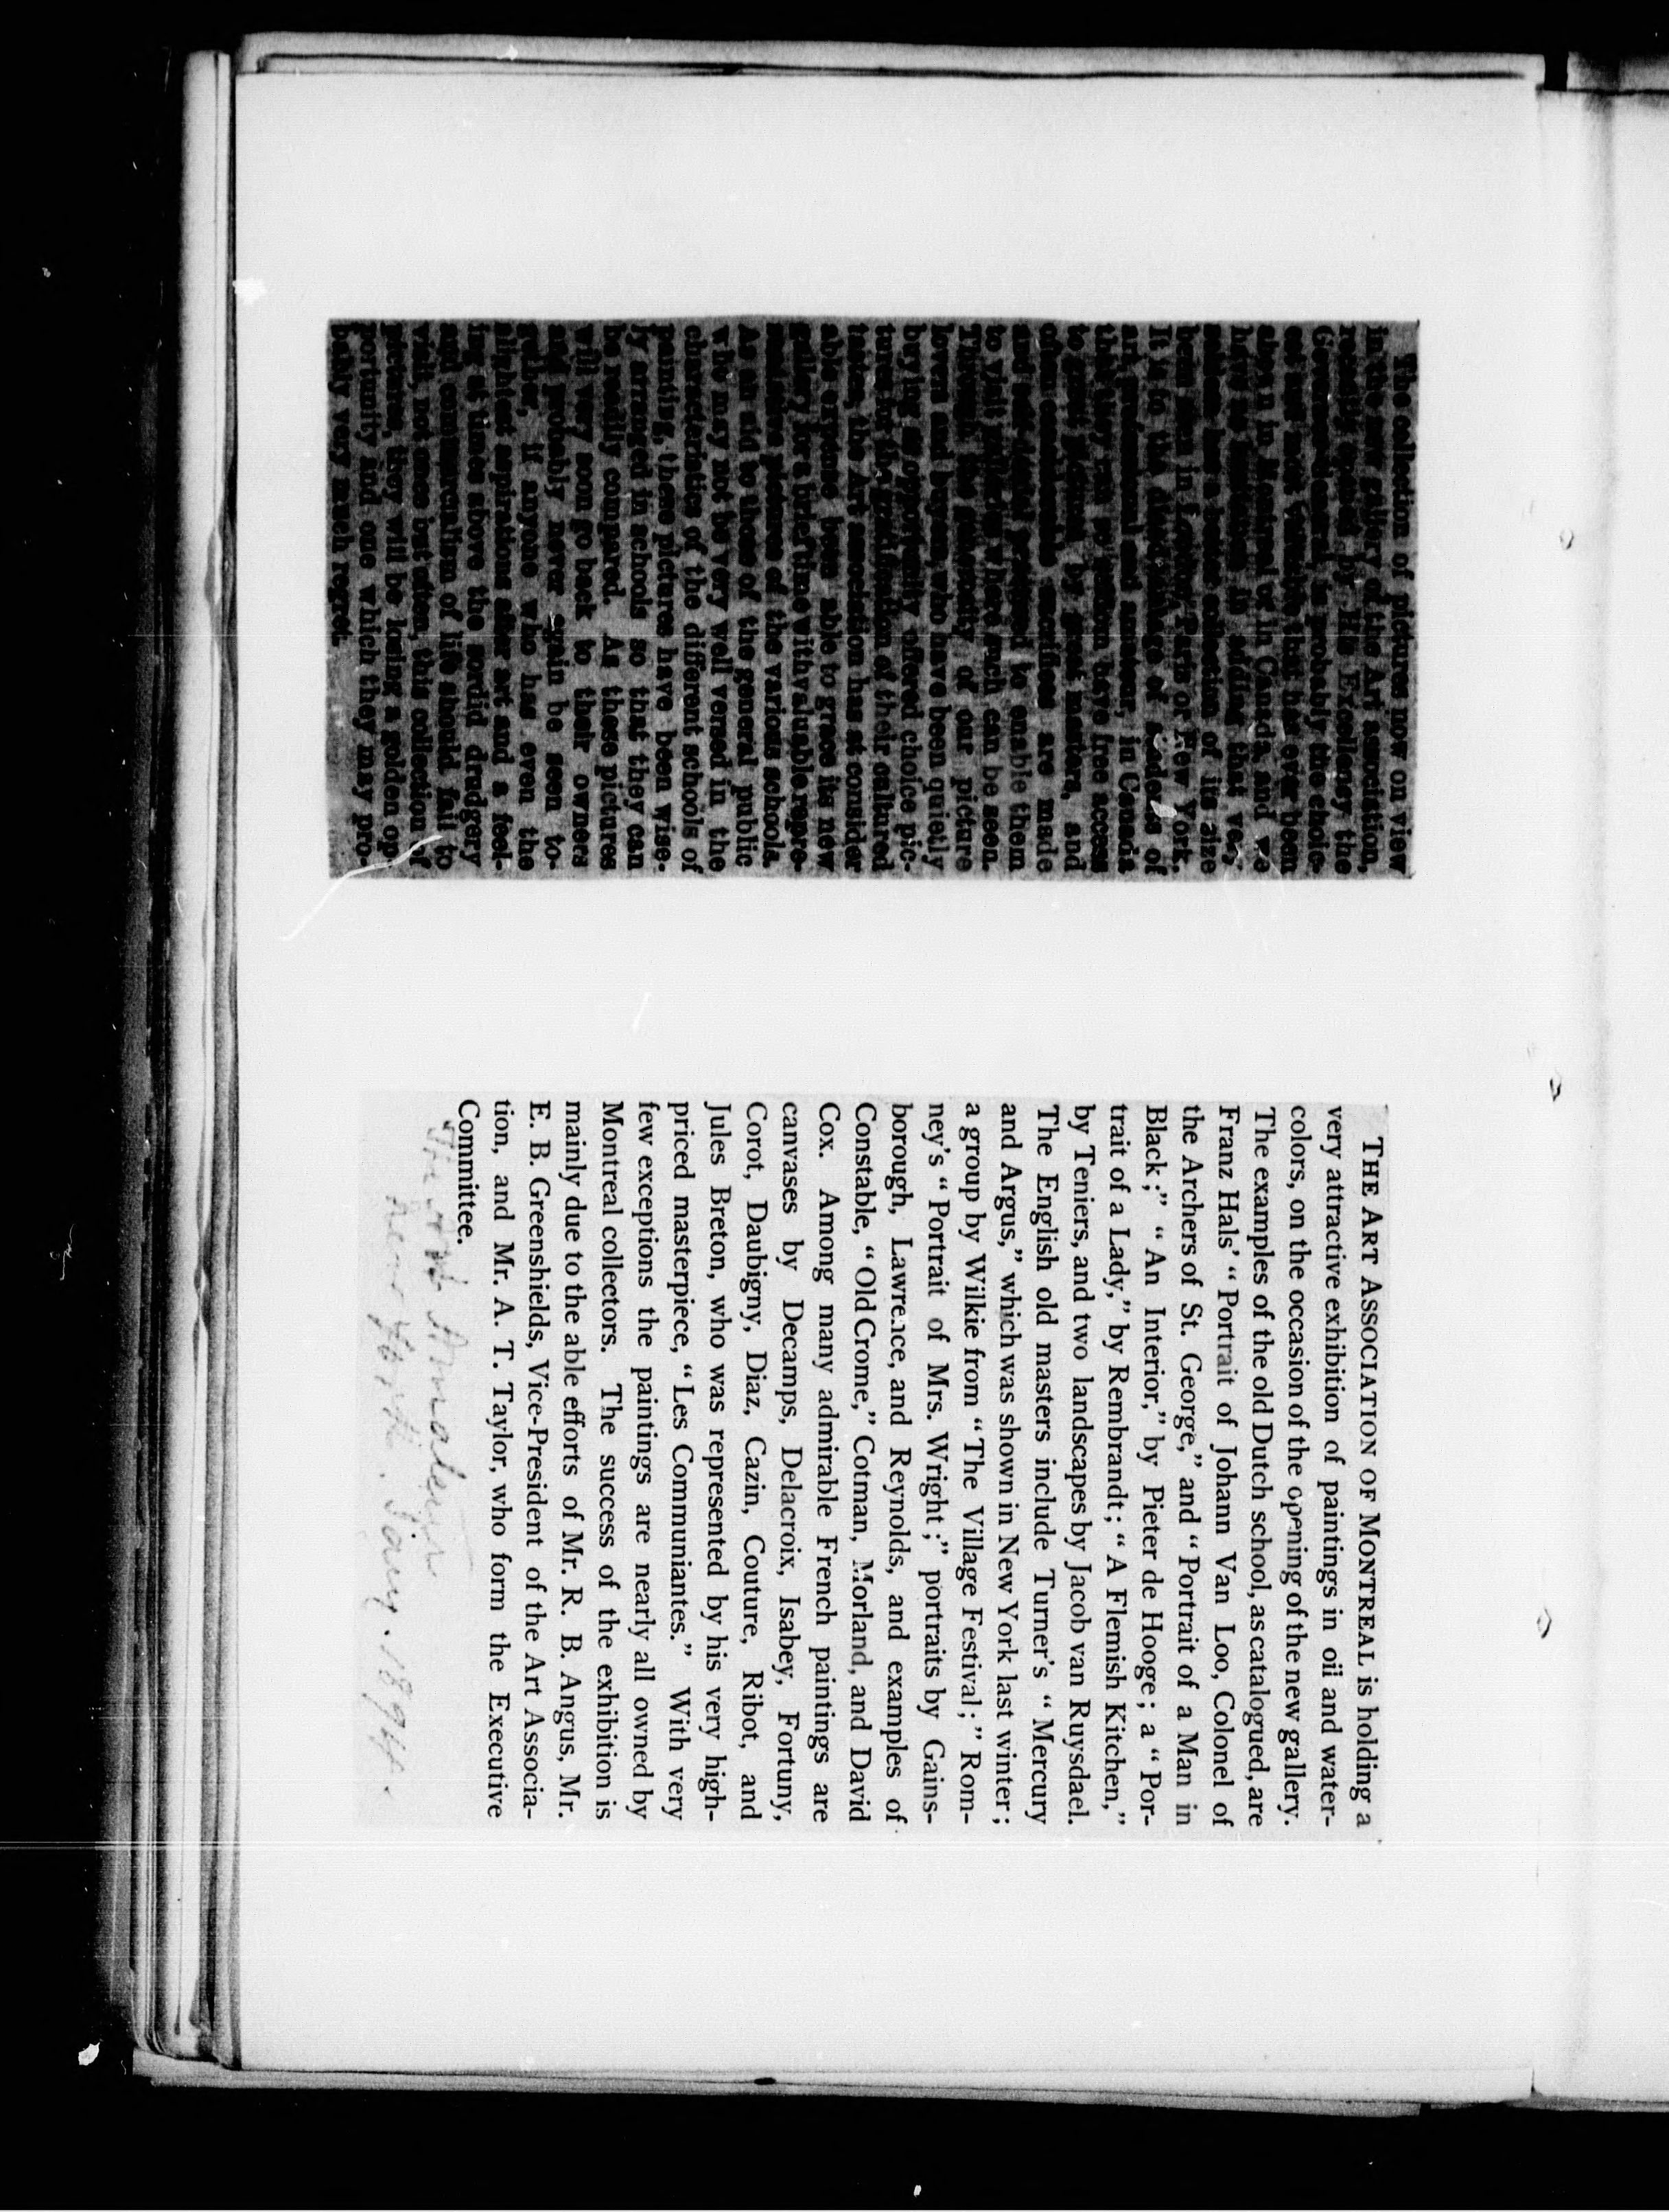 The collection of pictures now on view
in the new gallery of the Art association,
recently opened by His Excellency the
Governor-General is probably the choic-
est and most valuable that has ever been
shown in Montreal or in Canada, and we
have no hesitation in adding that very
seldom has a better collection of its size
been seen in London, Paris or New York.
It is to the disadvantage of students of
art, professional and amateur, in Canada
that they can so seldom have free access
to good pictures by great masters, and
often considerable sacrifices are made
to enable them
to visit where such can be seen.
Through the generosity of our picture
lovers and buyers, who have been quietly
buying as opportunity offered choice pic-
tures for the gratification of their cultured
tastes, the Art association has at consider
able expense been able to grace its new
gallery for a brief time with valuable repre-
sentative pictures of the various schools.
As an aid to those of the general public
who may not be very well versed in the
characteristics of the different schools of
painting, these pictures have been wise-
ly arranged in schools so that they can
be readily compared. As these pictures
will very soon go back to their owners
and probably never again be seen to-
gether, if anyone who has even the
slightest aspirations after art and a feel-
ing at times above the sordid drudgery
and commercialism of life should fail to
visit, not once but often, this collection of
pictures, they will be losing a golden op-
portunity and one which they may pro-
bably very much regret.
THE ART ASSOCIATION OF MONTREAL is holding a
very attractive exhibition of paintings in oil and water-
colors, on the occasion of the opening of the new gallery.
The examples of the old Dutch school, as catalogued, are
Franz Hals' “Portrait of Johann Van Loo, Colonel of
the Archers of St. George,” and “Portrait of a Man in
Black;” “An Interior,” by Pieter de Hooge; a “Por-
trait of a Lady,” by Rembrandt; “A Flemish Kitchen,”
by Teniers, and two landscapes by Jacob van Ruysdael.
The English old masters include Turner's “Mercury
and Argus,” which was shown in New York last winter;
a group by Wilkie from “The Village Festival;” Rom-
ney's “Portrait of Mrs. Wright;” portraits by Gains-
borough, Lawrence, and Reynolds, and examples of
Constable, “Old Crome,” Cotman, Morland, and David
Cox. Among many admirable French paintings are
canvases by Decamps, Delacroix, Isabey, Fortuny,
Corot, Daubigny, Diaz, Cazin, Couture, Ribot, and
Jules Breton, who was represented by his very high-
priced masterpiece, “Les Communiantes.” With very
few exceptions the paintings are nearly all owned by
Montreal collectors. The success of the exhibition is
mainly due to the able efforts of Mr. R. B. Angus, Mr.
E. B. Greenshields, Vice-President of the Art Associa-
tion, and Mr. A. T. Taylor, who form the Executive
Committee.
The Art Amateur
New York. Jany. 1894.